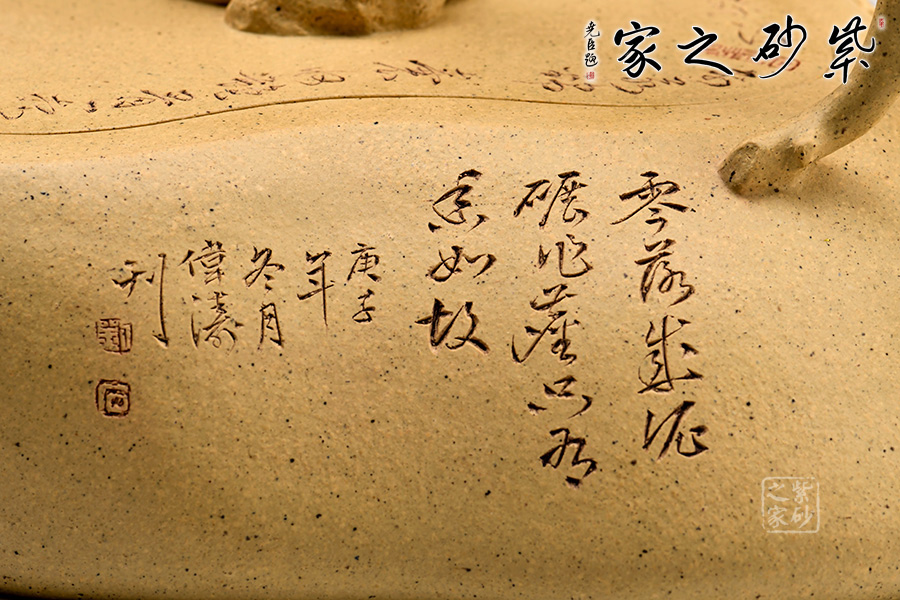 紫砂之家
尧臣题
零落成泥
碾作塵只有
香如故
庚子
年
冬月
偉濤
刊
紫砂之家